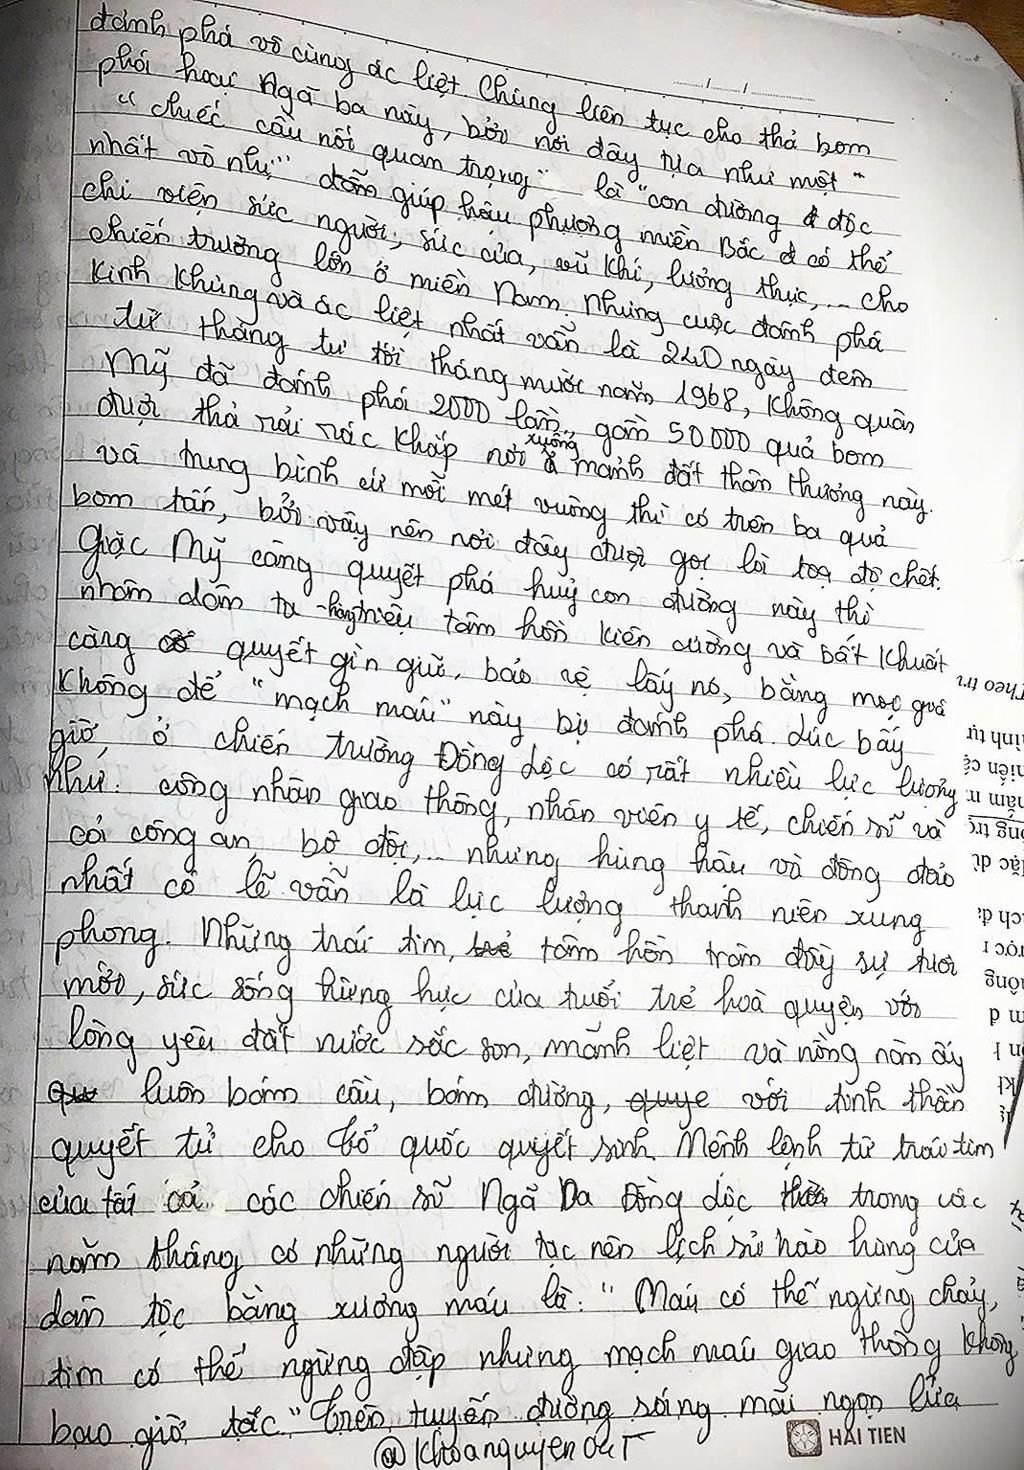 đánh phá vô cùng ác liệt. Chúng liên tục cho thả bom
phá hoại Ngã ba này, bởi nơi đây tựa như một "
" chiếc cầu nối quan trọng" là "con đường độc
nhất vô nhị" giúp hậu phương miền Bắc có thể
chi viện sức người, sức của, vũ khí, lương thực,... cho
chiến trường lớn ở miền Nam. Nhưng cuộc đánh phá
kinh khủng và ác liệt nhất vẫn là 240 ngày đêm
từ tháng tư tới tháng mười năm 1968, không quân
Mỹ đã đánh phá 2000 lần, gồm 50000 quả bom
được thả rải rác khắp nơi xuống mảnh đất thân thương này.
và trung bình cứ mỗi mét vuông thì có trên ba quả
bom tấn, bởi vậy nên nơi đây được gọi là toạ độ chết.
Giặc Mỹ càng quyết phá huỷ con đường này thì
nhân dân ta hàng triệu tâm hồn kiên cường và bất khuất
càng quyết gìn giữ, bảo vệ lấy nó, bằng mọi giá
không để "mạch máu" này bị đánh phá. Lúc bấy
giờ, ở chiến trường Đồng Lộc có rất nhiều lực lượng
như: công nhân giao thông, nhân viên y tế, chiến sĩ và
cả công an, bộ đội,... nhưng hùng hậu và đông đảo
nhất có lẽ vẫn là lực lượng thanh niên xung
phong. Những trái tim, tâm hồn tràm đầy sự tươi
mới, sức sống hừng hực của tuổi trẻ hoà quyện với
lòng yêu đất nước sắc son, mãnh liệt và nồng nàn ấy
luôn bám cầu, bám đường, với tinh thần
quyết tử cho tổ quốc quyết sinh. Mệnh lệnh từ trái tim
của tất cả các chiến sĩ Ngã Ba Đồng Lộc trong các
năm tháng có những người tạc nên lịch sử hào hùng của
dân tộc bằng xương máu là: "Máu có thể ngừng chảy,
tim có thể ngừng đập nhưng mạch máu giao thông không
bao giờ tắc." Trên tuyến đường sáng mãi ngọn lửa
@khoanguyenOUT
HẢI TIẾN